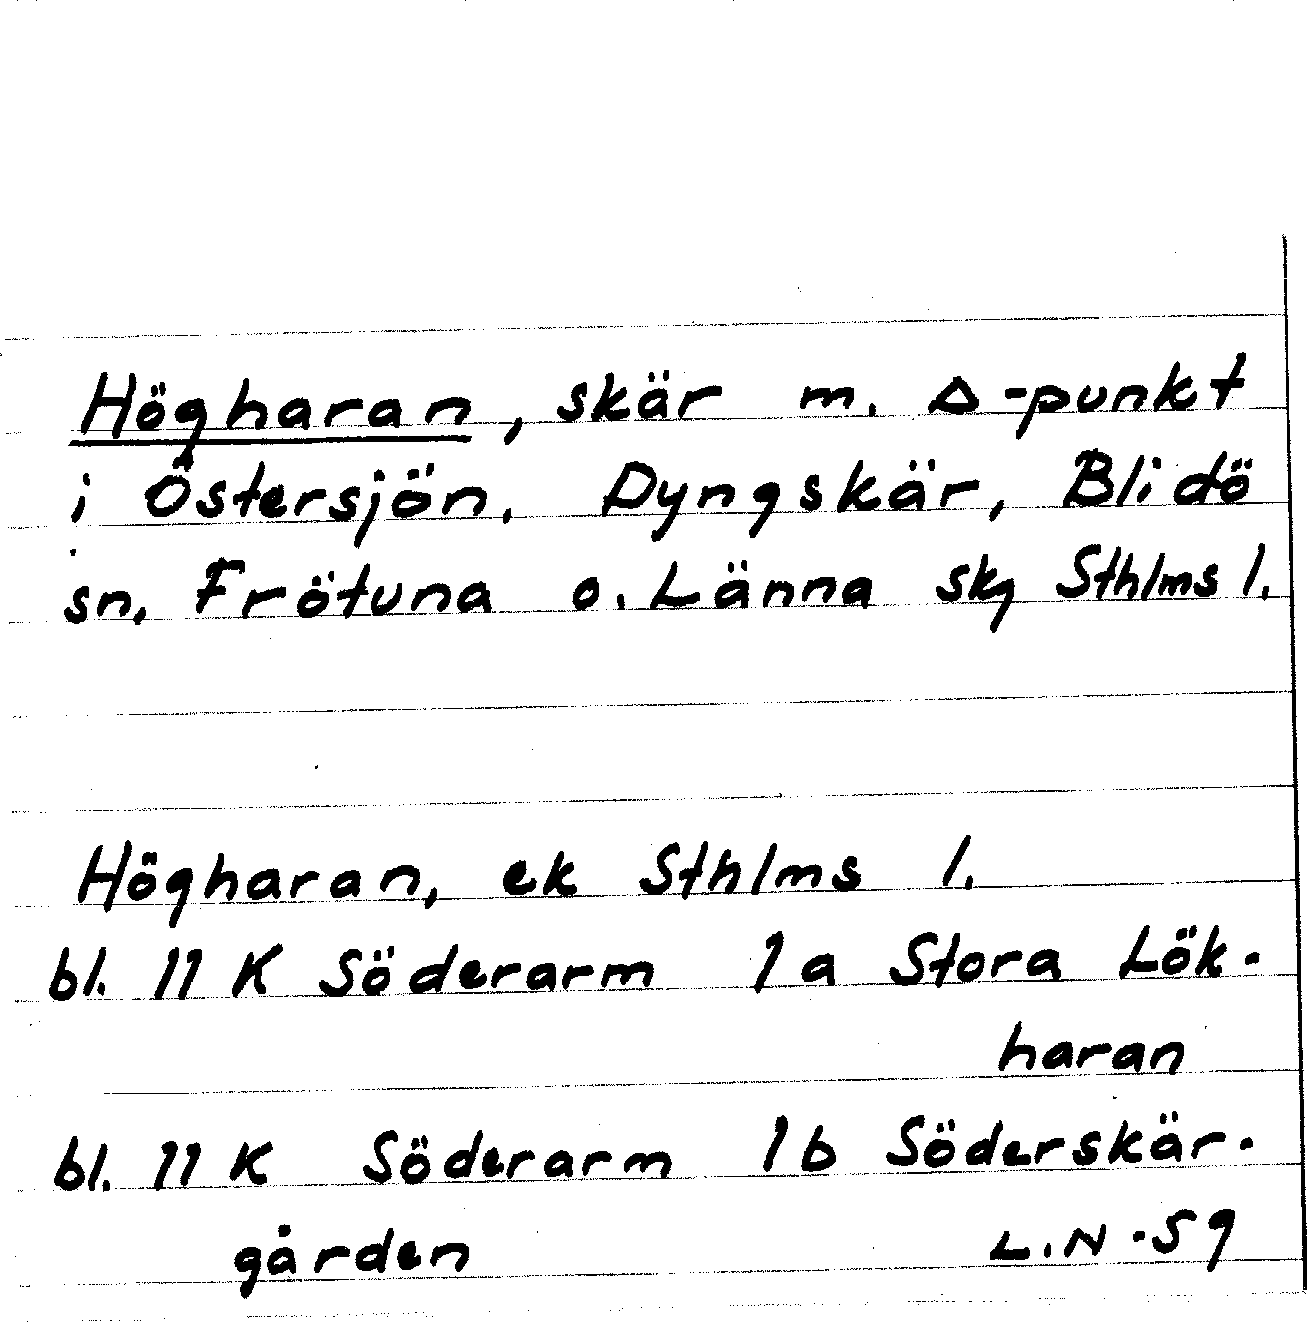 Högharan, skär m. Δ-punkt
i Östersjön. Dyngskär, Blidö
sn. Frötuna o. Länna skg Sthlms l.
Högharan, ek Sthlms l.
bl. 11 K Söderarm 1a Stora Lök-
haran
bl. 11 K Söderarm 1b Söderskär-
gården L.N -59